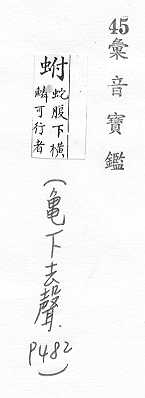 45彙音寶鑑
蚹 蛇腹下橫
鱗可行者
(龜下去聲.
P482)